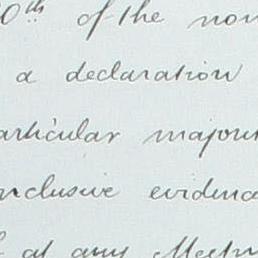 0th of the non
a declaration
articular majori
nclusive evidenc
f at any Meetin